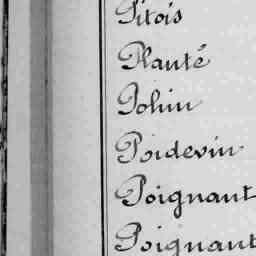 Pitois
Planté
Pohin
Poidevin
Poignant
Poignant